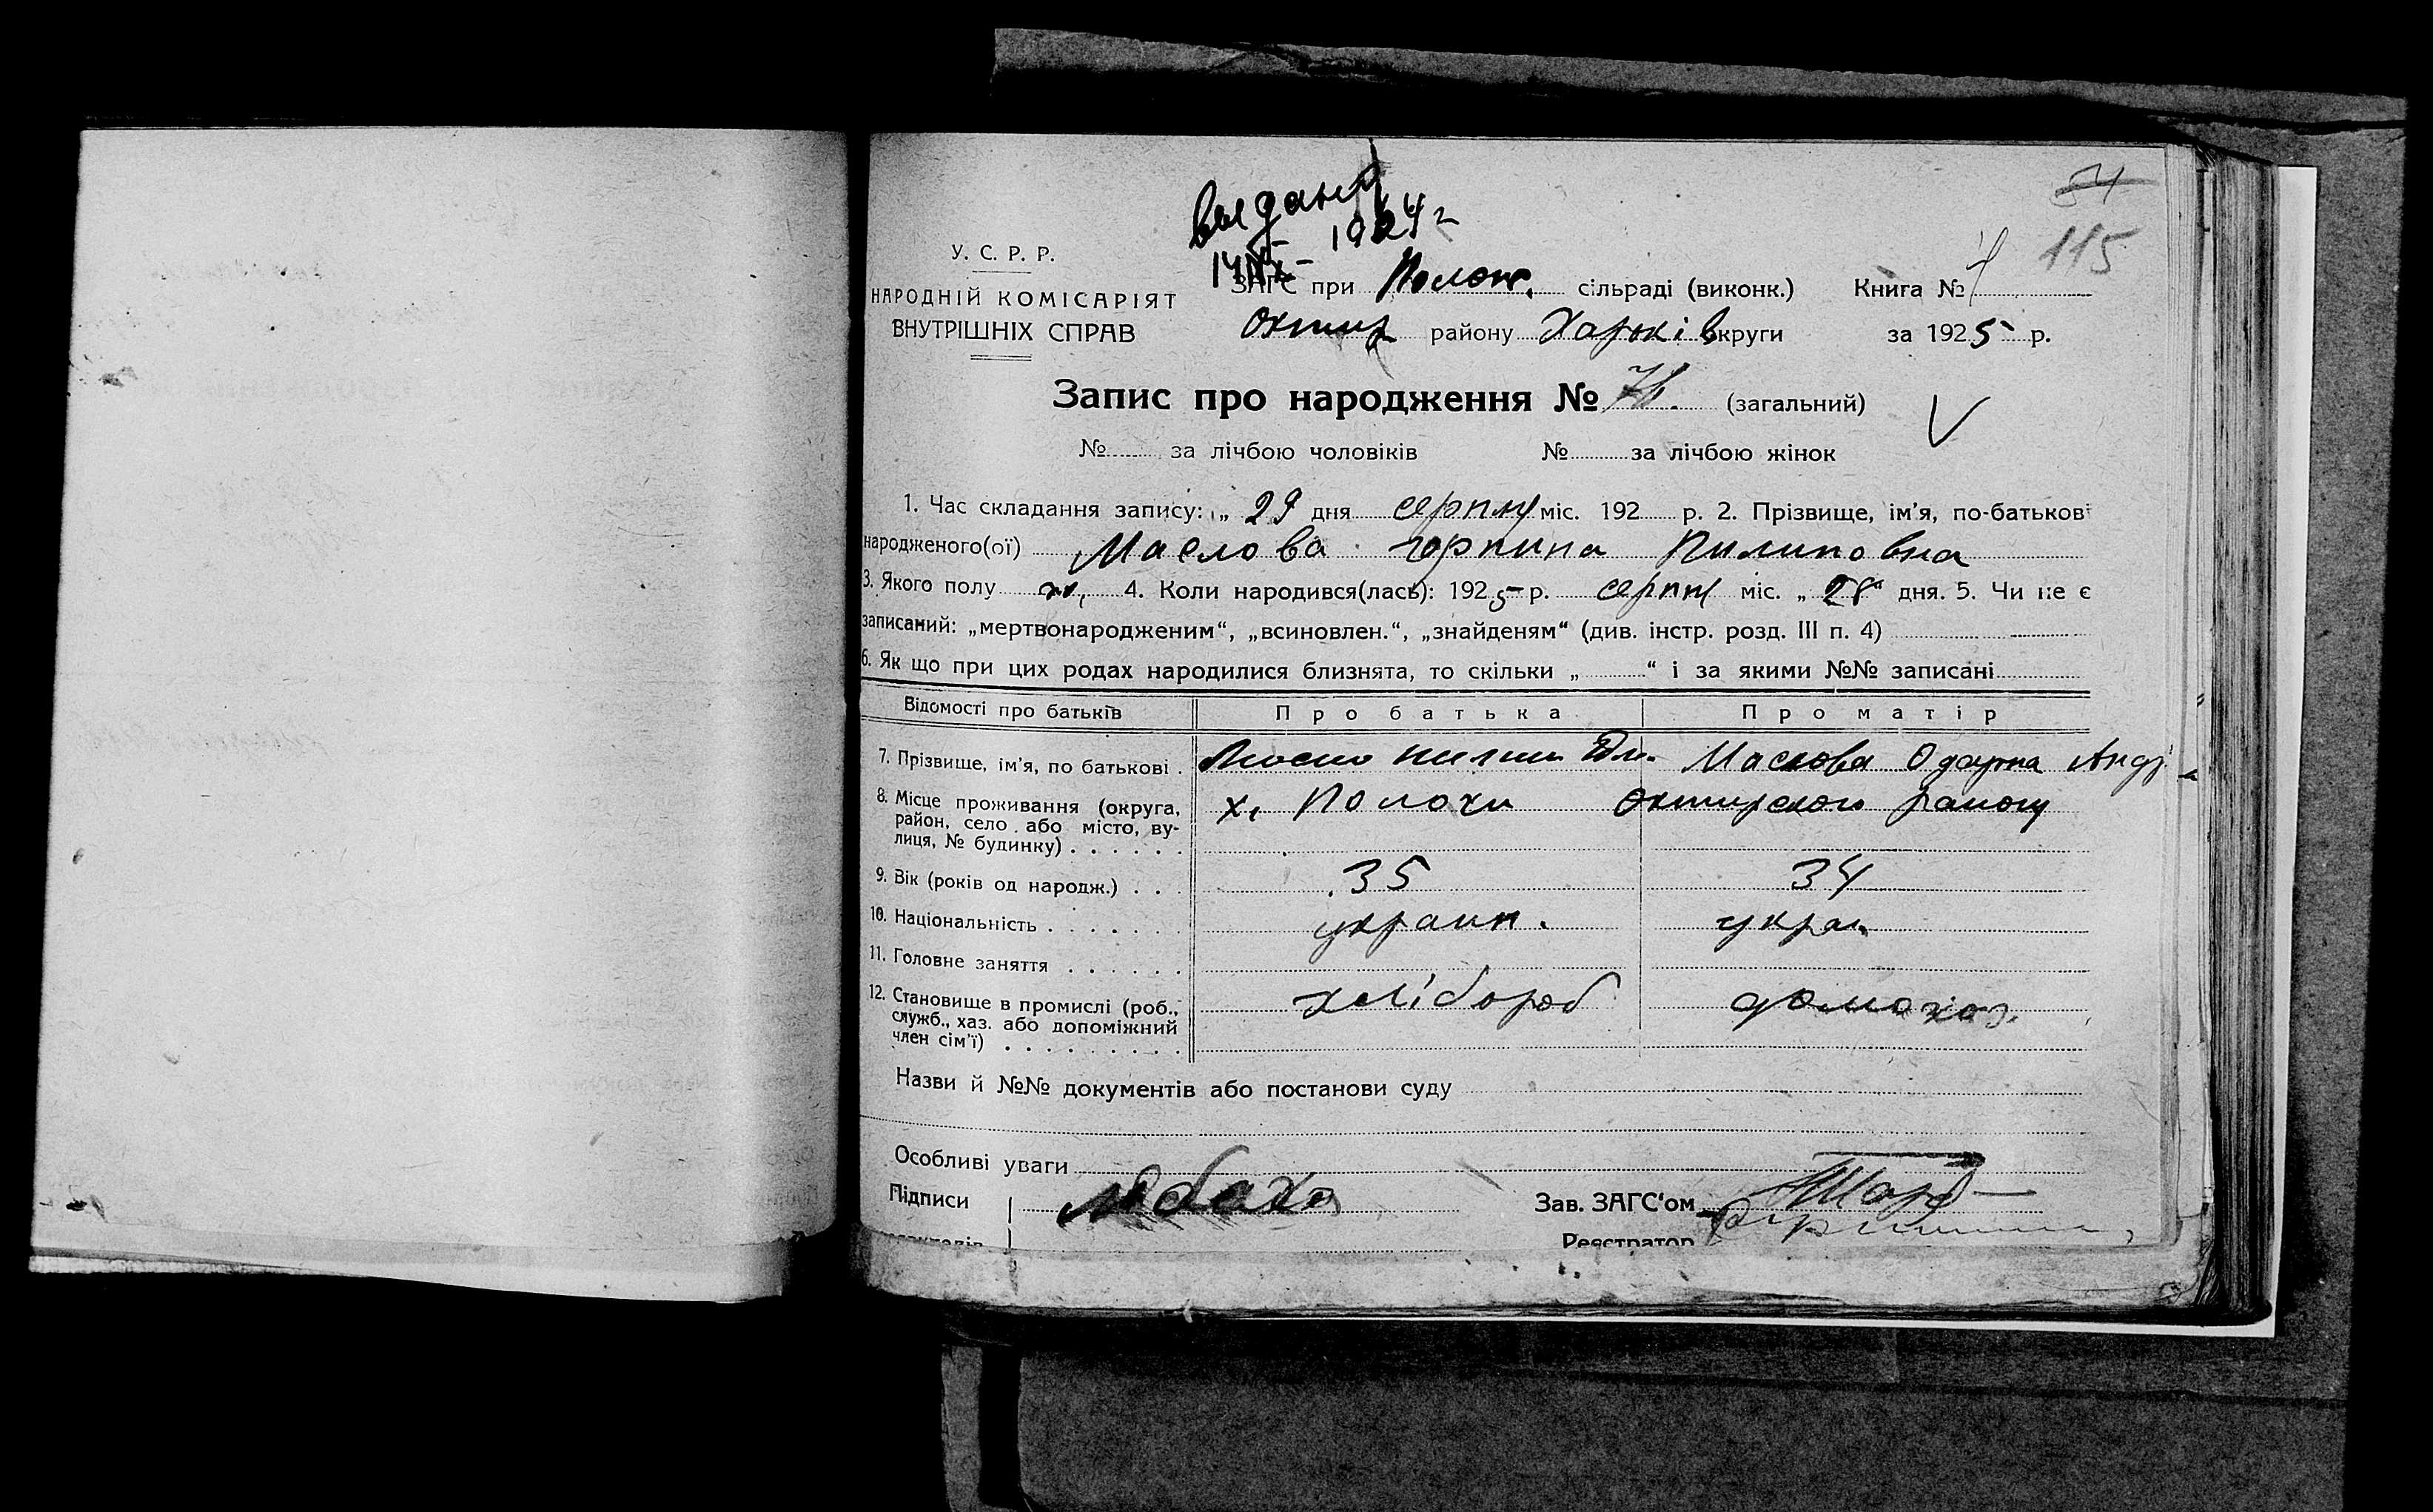 54
115
выдано
1924 г
У. С. Р. Р.
НАРОДНІЙ КОМІСАРІЯТ
ВНУТРІШНІХ СПРАВ
ЗАГС при Полож. сільраді (виконк.) Книга №
Охтир району Харьків округи за 1925 р.
Запис про народження № (загальний)
№ за лічбою чоловіків № за лічбою жінок
1. Час складання запису: „ 29 дня серпня міс. 192 р. 2. Прізвище, ім'я, по-батькові
народженого(ої) Маслова Горпина Пилиповна
3. Якого полу ж. 4. Коли народився(лась): 1925 р. серпня міс. „ 28 “ дня. 5. Чи не є
записаний: „мертвонародженим“, „всиновлен.“, „знайденям“ (див. інстр. розд. III п. 4)
6. Як що при цих родах народилися близнята, то скільки „ “ і за якими №№ записані
Відомості про батьків Про батька Про матір
7. Прізвише, ім'я, по батькові . Маслова Одарка Андр
8. Місце проживання (округа, х. Положи Охтирского району
район, село або місто, ву-
лиця, № будинку) . . . . . .
9. Вік (років од народж.) . . . 35 34
10. Національність . . . . . . . украин. украи.
11. Головне заняття . . . . . .
12. Становище в промислі (роб., хлібороб домохоз.
служб., хаз. або допоміжний
член сім'ї) . . . . . . . . .
Назви й №№ документів або постанови суду
Особливі уваги
Підписи Зав. ЗАГС'ом
Реєстратор